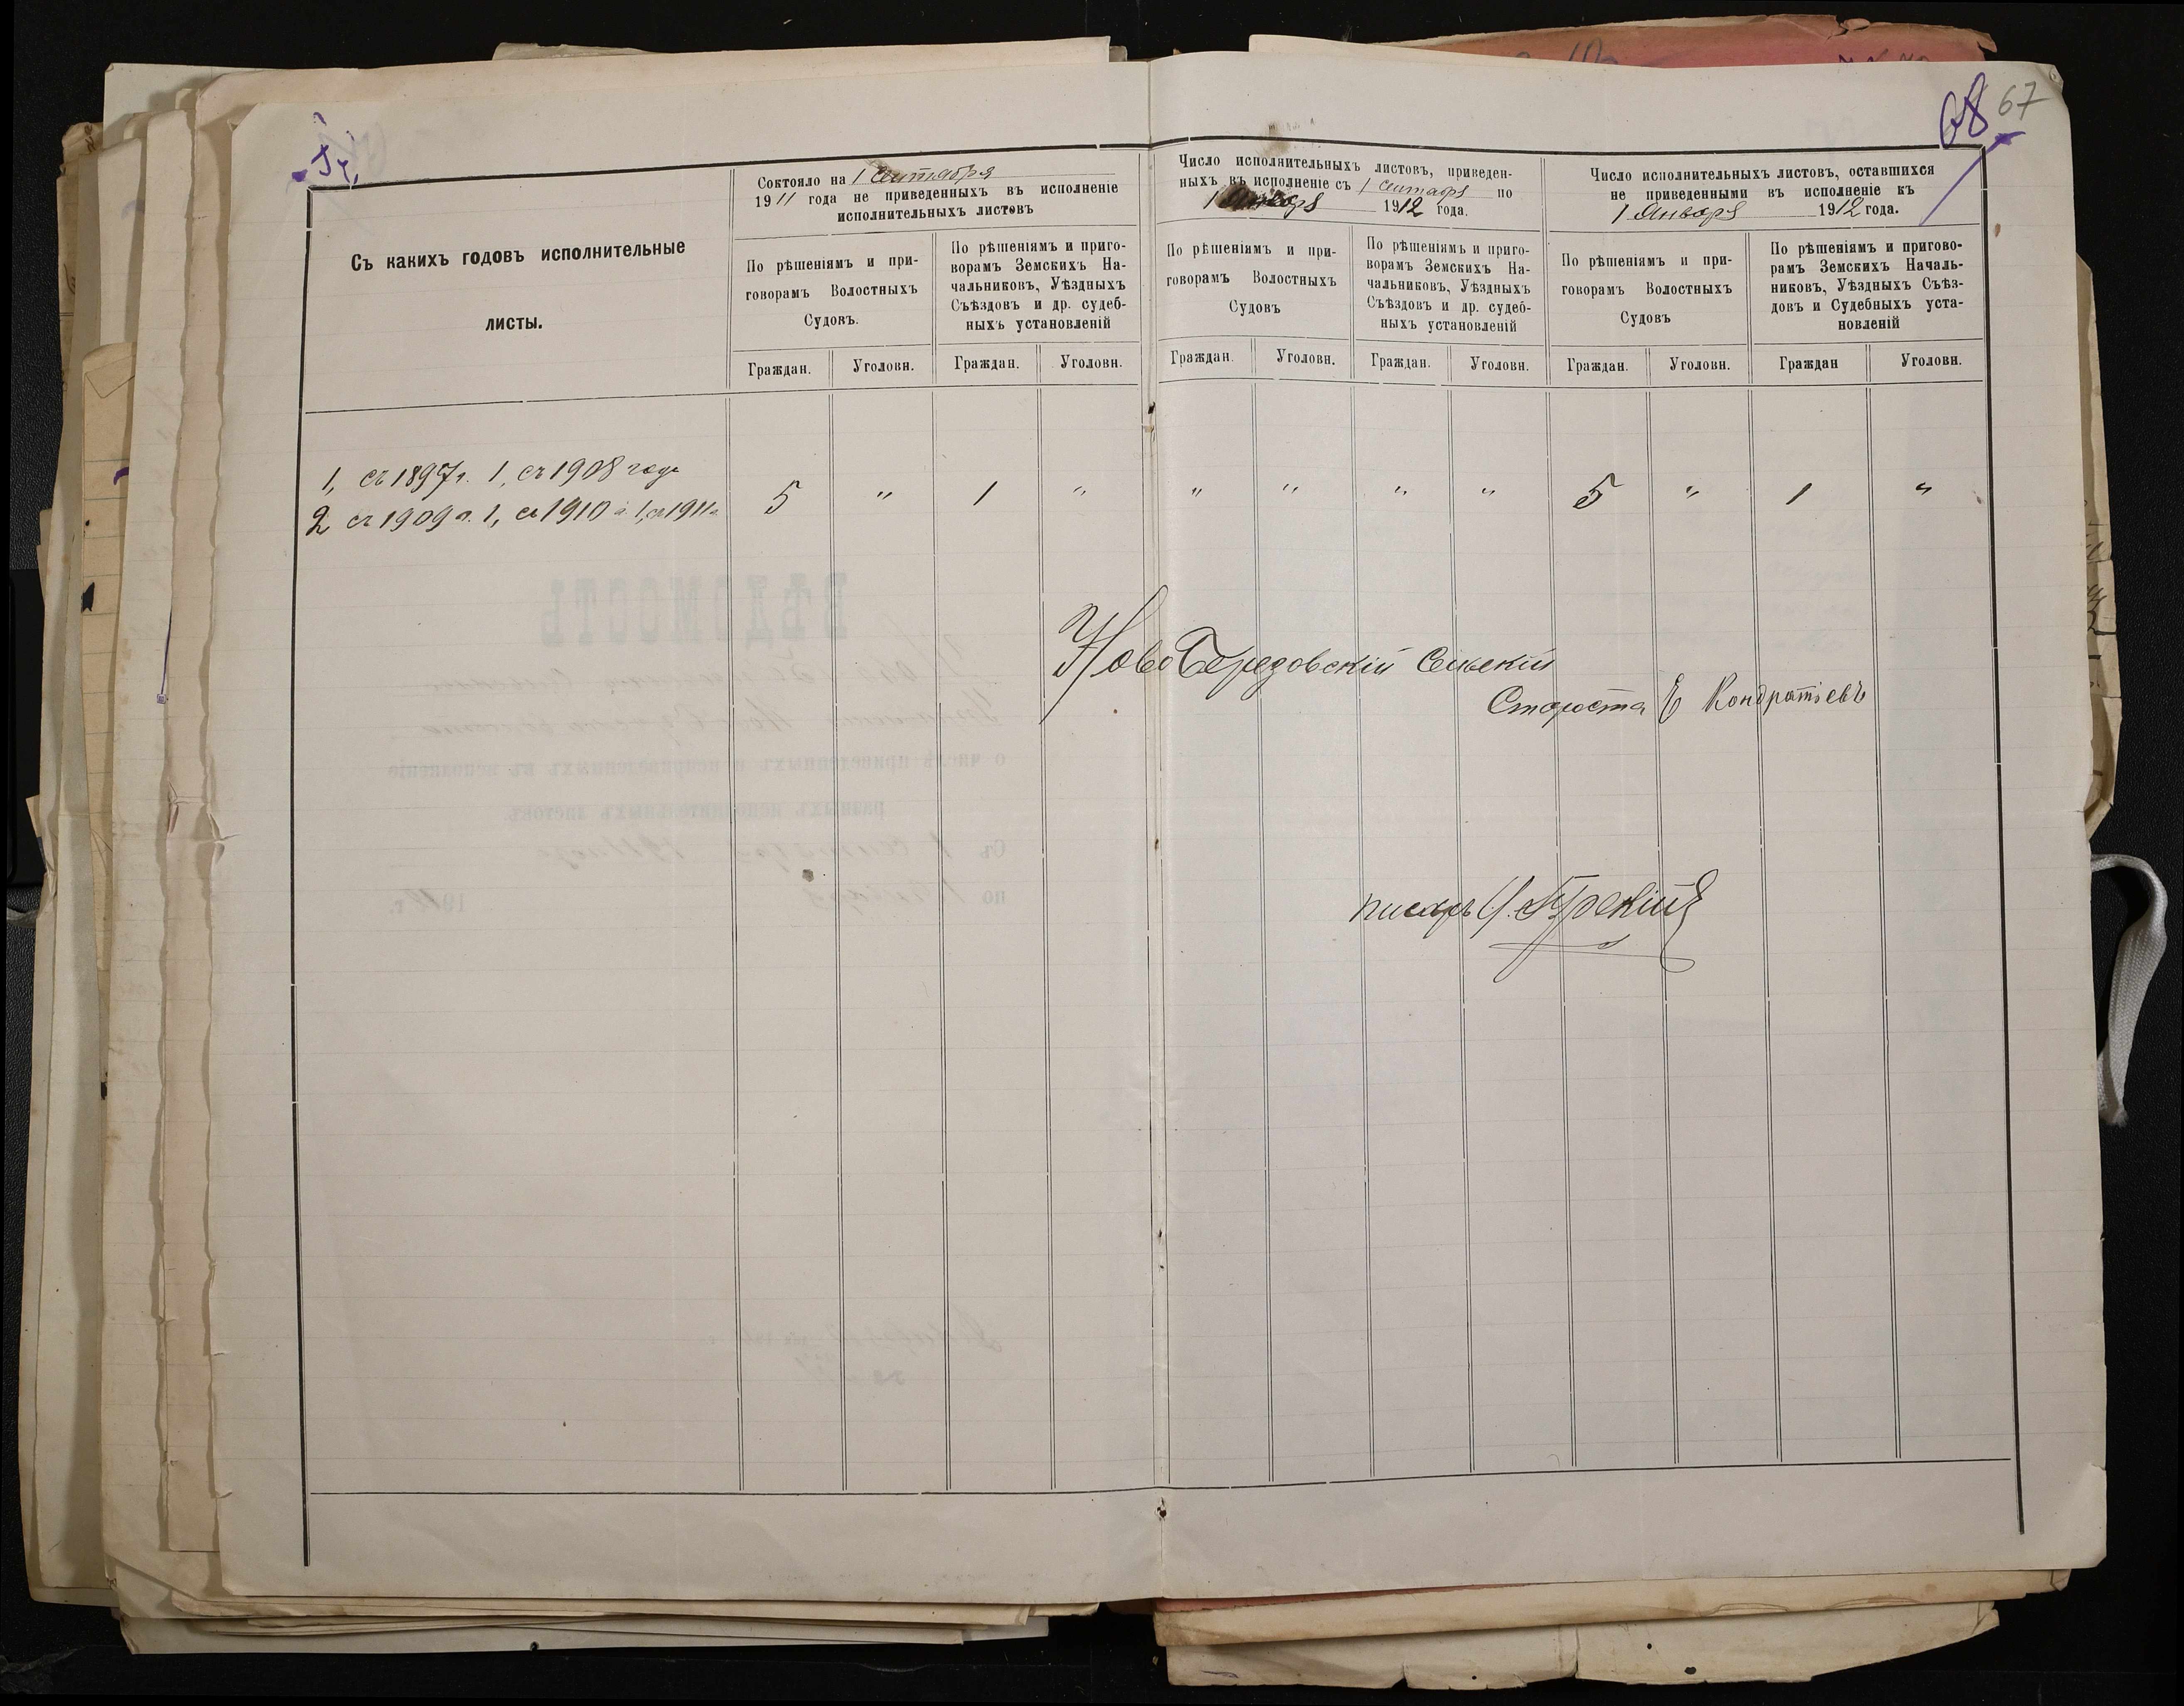 68 67
Съ какихъ годовъ исполнительные
листы.
Состояло на 1 Сентября
1911 года не приведенныхъ въ исполненіе
исполнительныхъ листовъ
По рѣшеніямъ и при-
говорамъ Волостныхъ
Судовъ.
По рѣшеніямъ и приго-
ворамъ Земскихъ На-
чальниковъ, Уѣздныхъ
Съѣздовъ и др. судеб-
ныхъ установленій
Граждан. Уголовн. Граждан. Уголовн.
Число исполнительныхъ листовъ, приведен-
ныхъ въ исполненіе съ 1 сентября по
1 Января 1912 года.
По рѣшеніямъ и при-
говорамъ Волостныхъ
Судовъ
По рѣшеніямъ и приго-
ворамъ Земскихъ На-
чальниковъ, Уѣздныхъ
Съѣздовъ и др. судеб-
ныхъ установленій
Граждан. Уголовн. Граждан. Уголовн.
Число исполнительныхъ листовъ, оставшихся
не приведенными въ исполненіе къ
1 Января 1912 года.
По рѣшеніямъ и при-
говорамъ Волостныхъ
Судовъ
По рѣшеніямъ и пригово-
рамъ Земскихъ Началь-
никовъ, Уѣздныхъ Съѣз-
довъ и Судебныхъ уста-
новленій
Граждан. Уголовн. Граждан Уголовн.
1, съ 1897 г. 1, съ 1908 года
2 съ 1909 г. 1, съ 1910 г. 1, съ 1911 г.
5 " 1 " " " " " 5 " 1 "
Ново Сельскій
Староста Е Кондратіевъ
писарь